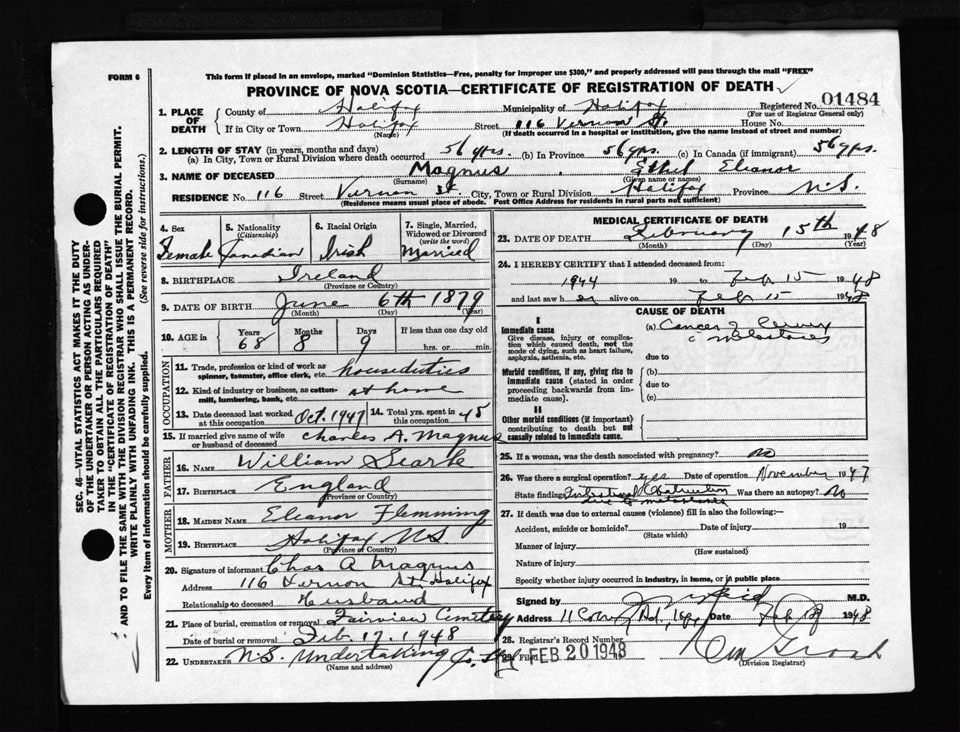 FORM 6
This form if placed in an envelope, marked "Dominion Statistics—Free, penalty for improper use $300," and properly addressed will pass through the mail "FREE"
PROVINCE OF NOVA SCOTIA—CERTIFICATE OF REGISTRATION OF DEATH
Registered No. 01484
(For use of Registrar General only)
1. PLACE OF DEATH
County of Halifax Municipality of Halifax
If in City or Town Halifax Street 116 Vernon St. House No.
(Name) (If death occurred in a hospital or institution, give the name instead of street and number)
2. LENGTH OF STAY (in years, months and days)
(a) In City, Town or Rural Division where death occurred 56 yrs. (b) In Province 56 yrs. (c) In Canada (if immigrant) 56 yrs.
3. NAME OF DECEASED Magnus, Ethel Eleanor
(Surname) (Given name or names)
RESIDENCE No. 116 Street Vernon St. City, Town or Rural Division Halifax Province N.S.
(Residence means usual place of abode. Post Office Address for residents in rural parts not sufficient)
4. Sex Female
5. Nationality (Citizenship) Canadian
6. Racial Origin Irish
7. Single, Married, Widowed or Divorced (write the word) Married
8. BIRTHPLACE Ireland
(Province or Country)
9. DATE OF BIRTH June 6th 1879
(Month) (Day) (Year)
10. AGE in Years 68 Months 8 Days 9 If less than one day old hrs. or min.
OCCUPATION
11. Trade, profession or kind of work as spinner, teamster, office clerk, etc. housduties
12. Kind of industry or business, as cotton-mill, lumbering, bank, etc. at home
13. Date deceased last worked at this occupation Oct. 1947 14. Total yrs. spent in this occupation 45
15. If married give name of wife or husband of deceased Charles A. Magnus
FATHER
16. NAME William Searle
17. BIRTHPLACE England
(Province or Country)
MOTHER
18. MAIDEN NAME Eleanor Flemming
19. BIRTHPLACE Halifax N.S.
(Province or Country)
20. Signature of informant Chas A Magnus
Address 116 Vernon St. Halifax
Relationship to deceased Husband
21. Place of burial, cremation or removal Fairview Cemetery
Date of burial or removal Feb. 17. 1948
22. UNDERTAKER N.S. Undertaking Co.
(Name and address)
MEDICAL CERTIFICATE OF DEATH
23. DATE OF DEATH February 15th 1948
(Month) (Day) (Year)
24. I HEREBY CERTIFY that I attended deceased from:
1944 19 to Feb 15 1948
and last saw her alive on Feb 15 1948
CAUSE OF DEATH
I
Immediate cause
Give disease, injury or complication which caused death, not the mode of dying, such as heart failure, asphyxia, asthenia, etc.
(a) Cancer of
due to
Morbid conditions, if any, giving rise to immediate cause (stated in order proceeding backwards from immediate cause).
(b)
due to
(c)
II
Other morbid conditions (if important) contributing to death but not causally related to immediate cause.
25. If a woman, was the death associated with pregnancy? no
26. Was there a surgical operation? yes Date of operation November 1947
State findings Intestinal Obstruction Was there an autopsy? no
due to metastases
27. If death was due to external causes (violence) fill in also the following:—
Accident, suicide or homicide? Date of injury 19
(State which)
Manner of injury
(How sustained)
Nature of injury
Specify whether injury occurred in industry, in home, or in public place
Signed by Reid M.D.
Address Date Feb 1948
28. Registrar's Record Number
29. Filed FEB 20 1948
(Division Registrar)
SEC. 46—VITAL STATISTICS ACT MAKES IT THE DUTY OF THE UNDERTAKER OR PERSON ACTING AS UNDERTAKER TO OBTAIN ALL THE PARTICULARS REQUIRED IN THE "CERTIFICATE OF REGISTRATION OF DEATH"
AND TO FILE THE SAME WITH THE DIVISION REGISTRAR WHO SHALL ISSUE THE BURIAL PERMIT.
WRITE PLAINLY WITH UNFADING INK. THIS IS A PERMANENT RECORD.
Every item of information should be carefully supplied. (See reverse side for instructions.)